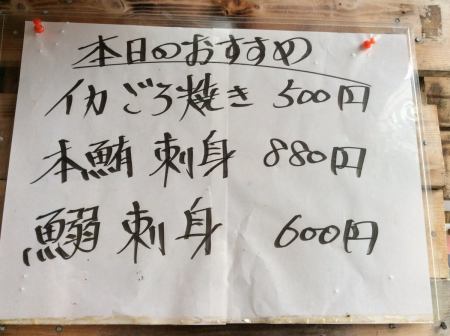 本日のおすすめ
イカごろ焼き 500円
本鮪 刺身 880円
鰯 刺身 600円